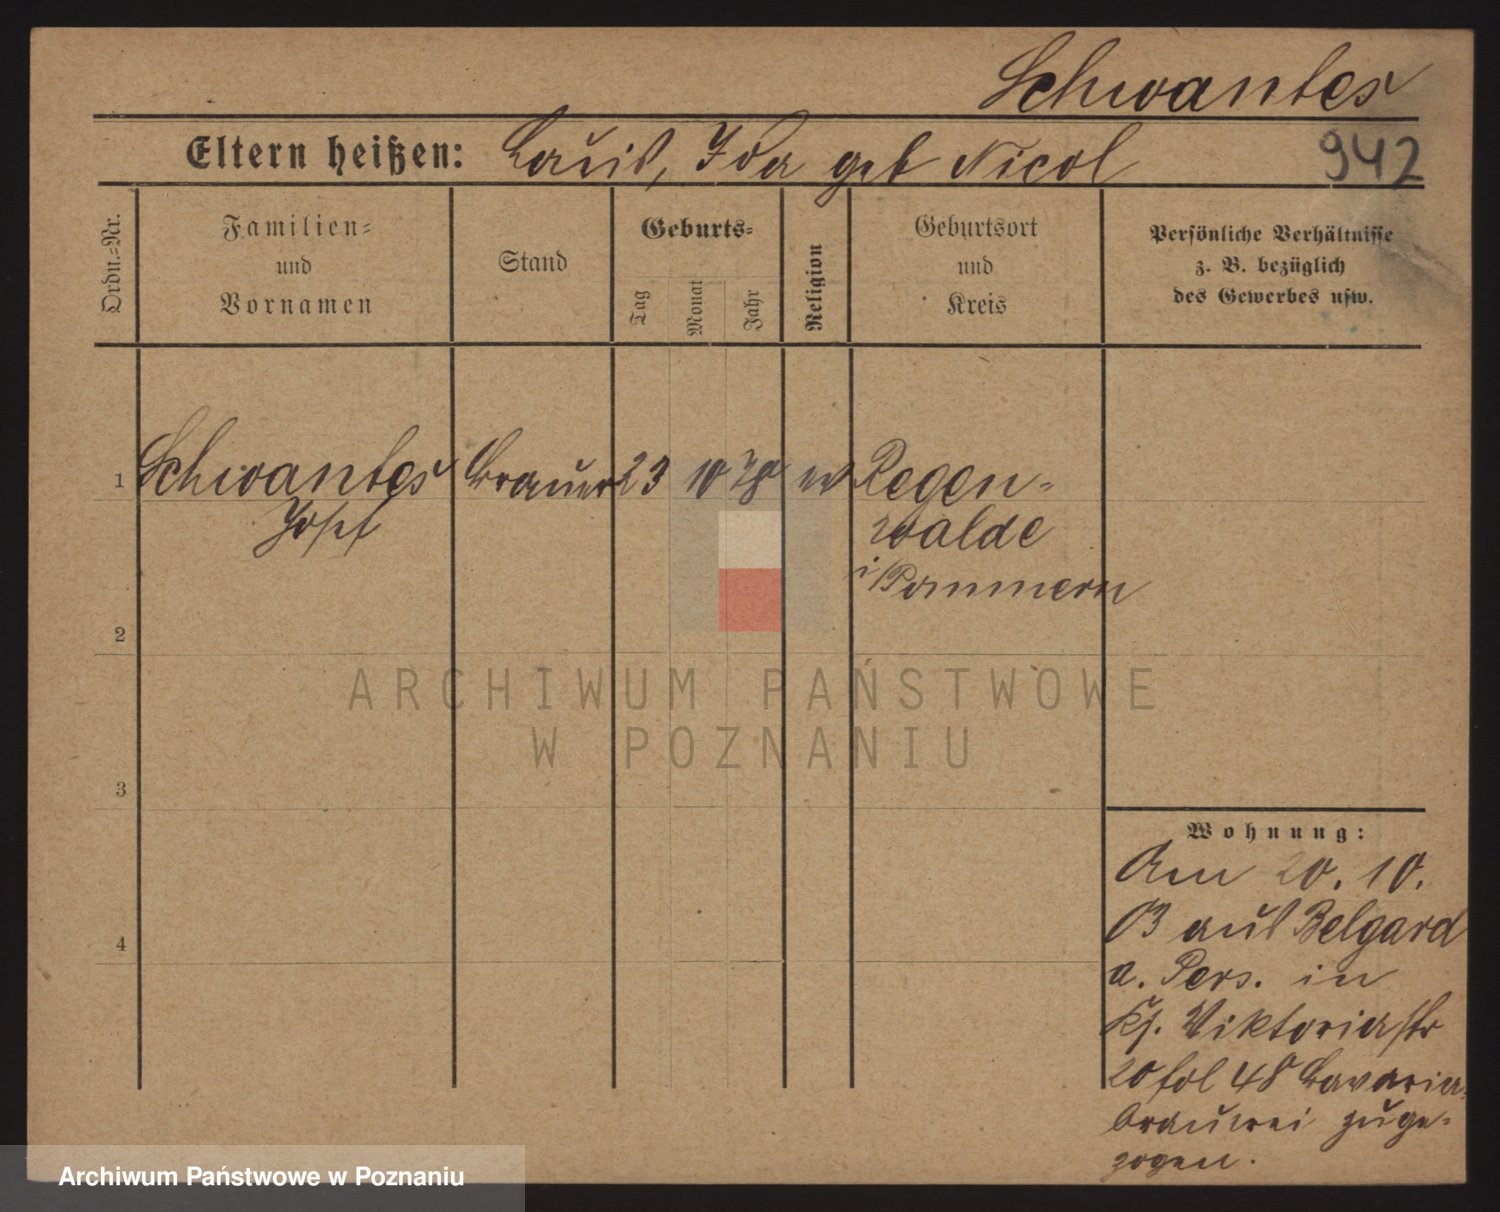 Schwantes
Eltern heißen: Louis, Ida geb Nicol
942
Ordn.-Nr.
Familien-
und
Vornamen
Stand
Geburts-
Tag
Monat
Jahr
Religion
Geburtsort
und
Kreis
Persönliche Verhältnisse
z. B. bezüglich
des Gewerbes usw.
1 Schwantes Brauer 23 10 78 ev Regen-
Josef walde
i/Pommern
2
3
4
Wohnung:
Am 20. 10.
03 aus Belgard
a. Pers. in
Viktoriastr
20 fol 48 Bavaria-
brauerei zuge-
zogen.
ARCHIWUM PAŃSTWOWE
W POZNANIU
Archiwum Państwowe w Poznaniu